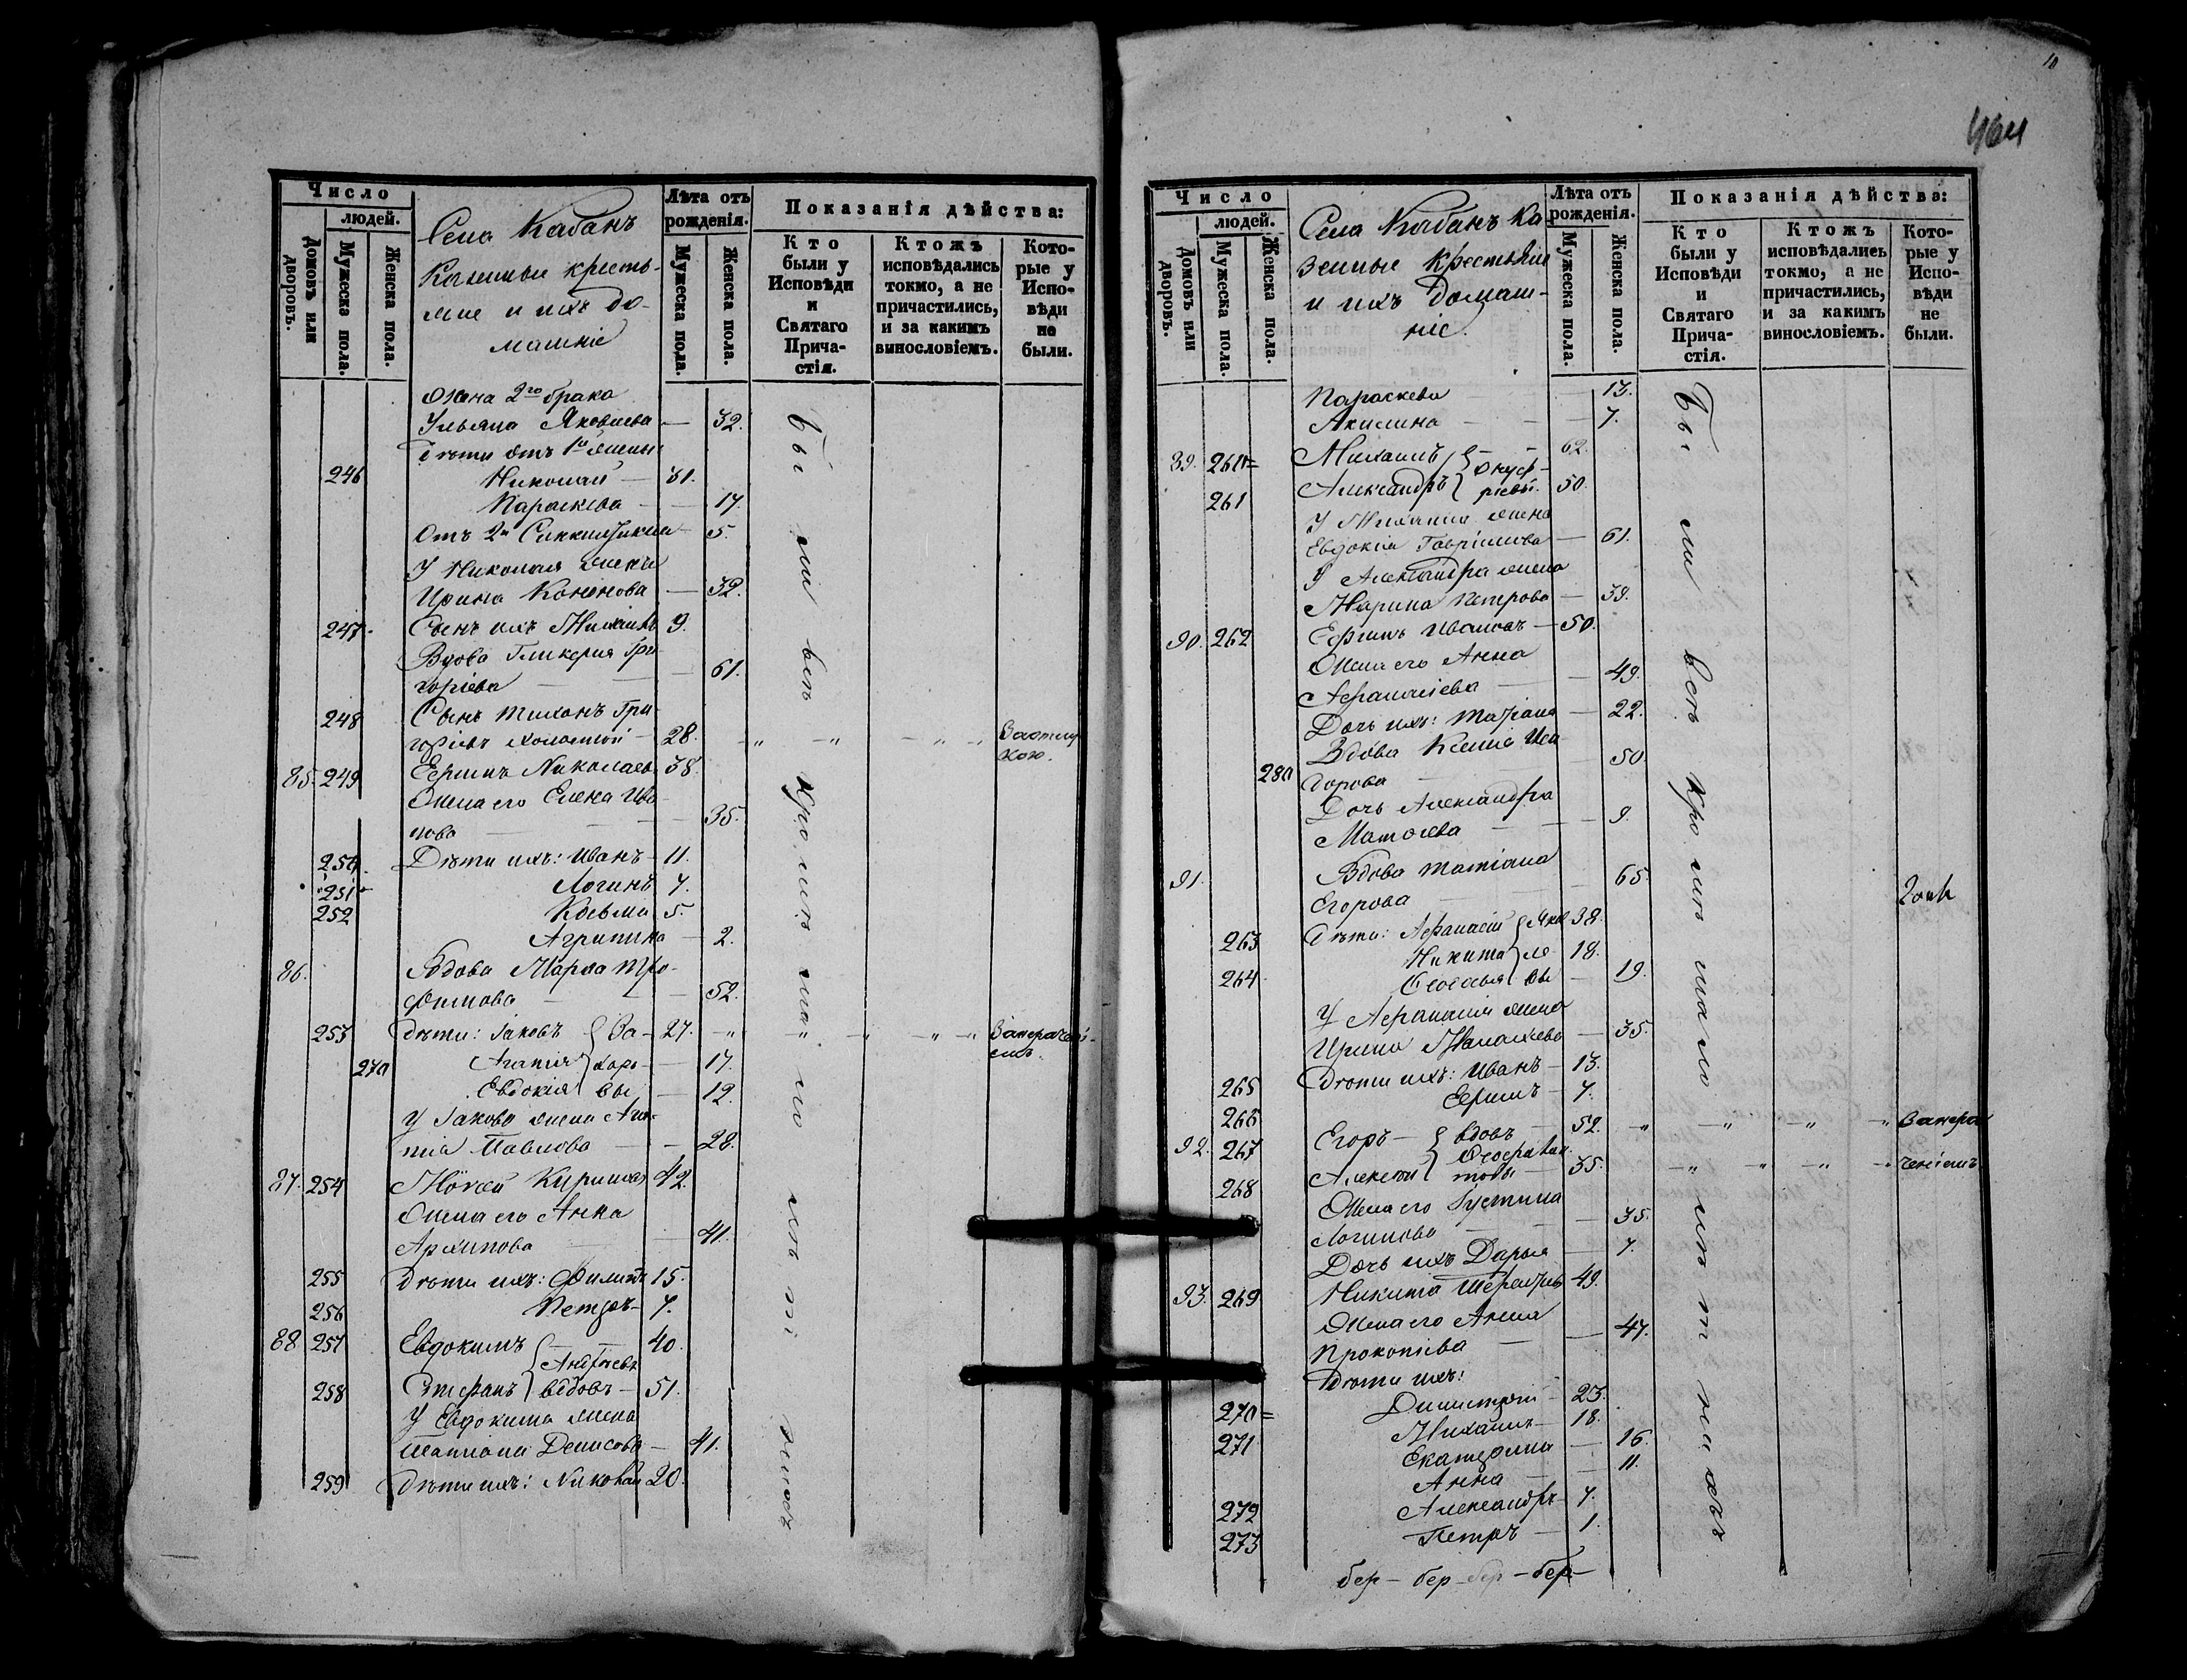 10
464
Число
людей.
Домовъ или дворовъ.
Мужеска пола.
Женска пола.
Села Кабанъ
Казенные кресть-
яне и ихъ до-
машніе
Лѣта отъ рожденія.
Мужеска пола.
Женска пола.
Показанія дѣйства:
Кто были у Исповѣди и Святаго Прича-стія.
Ктожъ исповѣдались токмо, а не причастились, и за какимъ винословіемъ.
Кото-рые у Испо-вѣди не были.
Жена 2го брака
Ульяна Яковлева — 32.
Дѣти отъ 1й жены
246 Николай — 31.
Параскева — 17.
Отъ 2й 5.
У Николая жена
Ирина Кононова — 32.
247 Сынъ ихъ Михаилъ 9.
Вдова Гликерия Гри-
горіева — 61.
248 Сынъ Тихонъ Гри-
горіевъ холостой — 28. — „ — „ — „ — „
85. 249 Ефимъ Николаевъ 38.
Жена его Елена Ива-
нова — 35.
250 Дѣти ихъ: Иванъ — 11.
251 Логинъ 7.
252 Козьма 5.
Агрипина — 2.
86. Вдова Марѳа Тро-
фимова — 52.
253 Дѣти: Іаковъ } За- — 27. — „ „ — „ — „ — „ За нераче-
ніемъ.
270 Агапія } харо- — 17.
Евдокія } вы — 12.
У Іакова жена Ага-
пія Павлова — 28.
87. 254 Мокей Кириловъ 42.
Жена его Анна
Архипова — 41.
255 Дѣти ихъ: Филиппъ 15.
256 Петръ — 7.
88 257 Евдокимъ } — 40.
Андреевы
258 Стефанъ } вдовъ — 51.
У Евдокима жена
Татіана Денисова — 41.
259 Дѣти ихъ: Николай 20.
Бы ли всѣ кро мѣ ма ло лѣ т нихъ
Число
людей.
Домовъ или дворовъ.
Мужеска пола.
Женска пола.
Села Кабанъ Ка-
зенные Крестьяне
и ихъ домаш-
ніе.
Лѣта отъ рожденія.
Мужеска пола.
Женска пола.
Показанія дѣйства:
Кто были у Исповѣди и Святаго Прича-стія.
Ктожъ исповѣдались токмо, а не причастились, и за какимъ винословіемъ.
Кото-рые у Испо-вѣди не были.
Параскева — 13.
Акилина — 7.
89. 260 Михаилъ } Онуф- — 62.
261 Александръ } ріевы. 50.
У Михаила жена
Евдокія Гавріилова — 61.
У Александра жена
Марина Петрова — 39.
90. 262 Ефимъ Ивановъ — 50.
Жена его Анна
Афанасіева — 49.
Дочь ихъ: Татіана — 22.
Вдова Ксенія Иси-
280 дорова — 50
Дочь Александра
Матѳеева — 9.
91. Вдова Татіана
Егорова — 65.
263 Дѣти: Афанасій } Яков- 38.
Никита } ле- 18.
264 Ѳеодосья } вы — 19.
У Афанасія жена
Ирина — 35.
265 Дѣти ихъ: Иванъ — 13.
266 Ефимъ — 7.
92. 267 Егоръ — } вдовъ — 52. — „ — „ — „ — „ За нера-
268 Алексѣй } 35. — „ — „ — „ — „ ченіемъ
Жена его Іустина
Логинова — 35.
Дочь ихъ Дарья — 7.
93. 269 Никита 49.
Жена его Анна
Прокопіева — 47.
Дѣти ихъ:
270 Димитрій — 23.
271 Михаилъ — 18.
Екатерина — 16.
Анна — 11.
272 Александръ 7.
273 Петръ — 1.
Бы ли всѣ кро мѣ мало лѣ т нихъ
бер — бер — бер — бер —